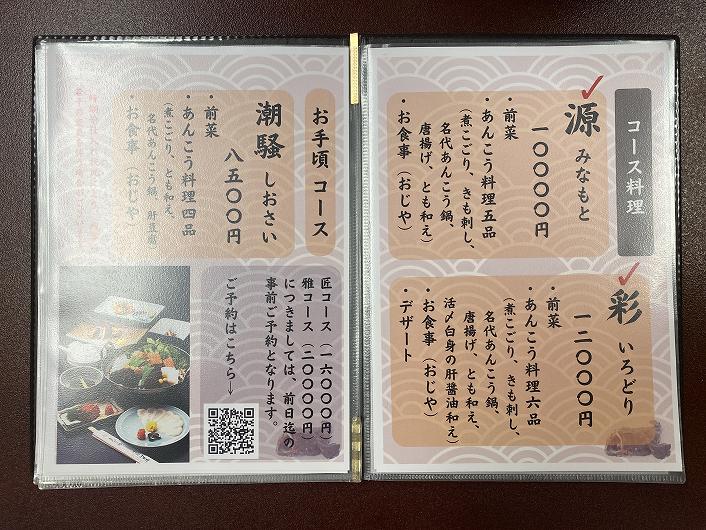 コース料理
源 みなもと
一〇〇〇〇円
・前菜
・あんこう料理五品
(煮こごり、きも刺し、
名代あんこう鍋、
唐揚げ、とも和え)
・お食事(おじや)
彩 いろどり
一二〇〇〇円
・前菜
・あんこう料理六品
(煮こごり、きも刺し、
名代あんこう鍋、
唐揚げ、とも和え、
活〆白身の肝醤油和え)
・お食事(おじや)
・デザート
お手頃 コース
潮騒 しおさい
八五〇〇円
・前菜
・あんこう料理四品
(煮こごり、とも和え、
名代あんこう鍋、肝豆腐)
・お食事(おじや)
匠コース(一六〇〇〇円)
雅コース(二〇〇〇〇円)
につきましては、前日迄の
事前ご予約となります。
ご予約はこちら→